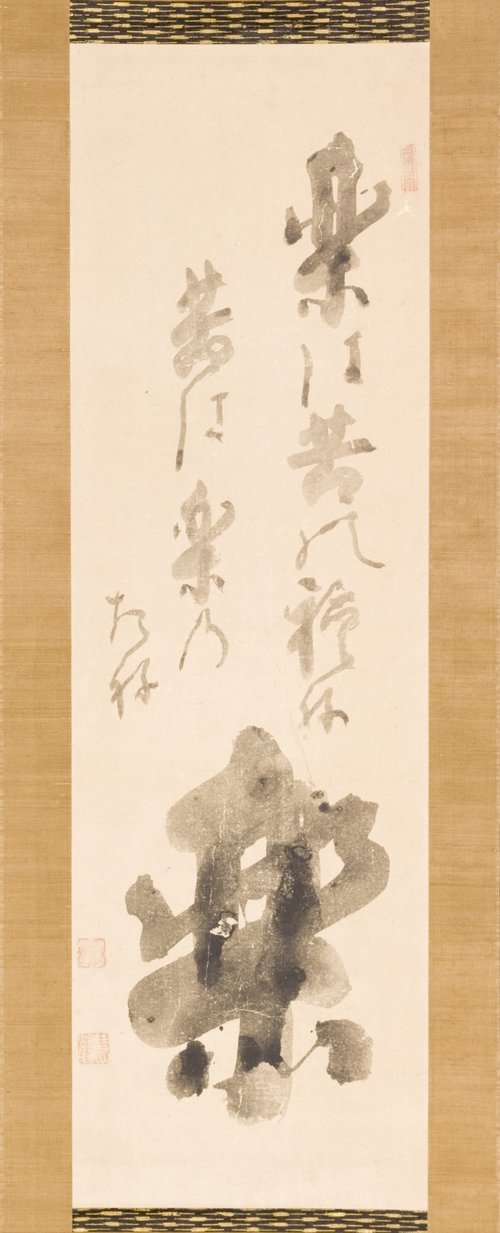 楽は苦の種
苦は楽の
たね
楽